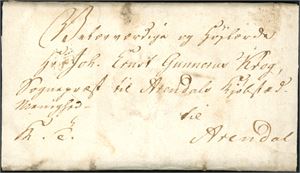 Velærværdige og Høylærde
Hr: Joh. Ernst Gunnerus Krog,
Sognepræst til Arendals Kjøbstæd-
Menighed
til
K. T.
Arendal